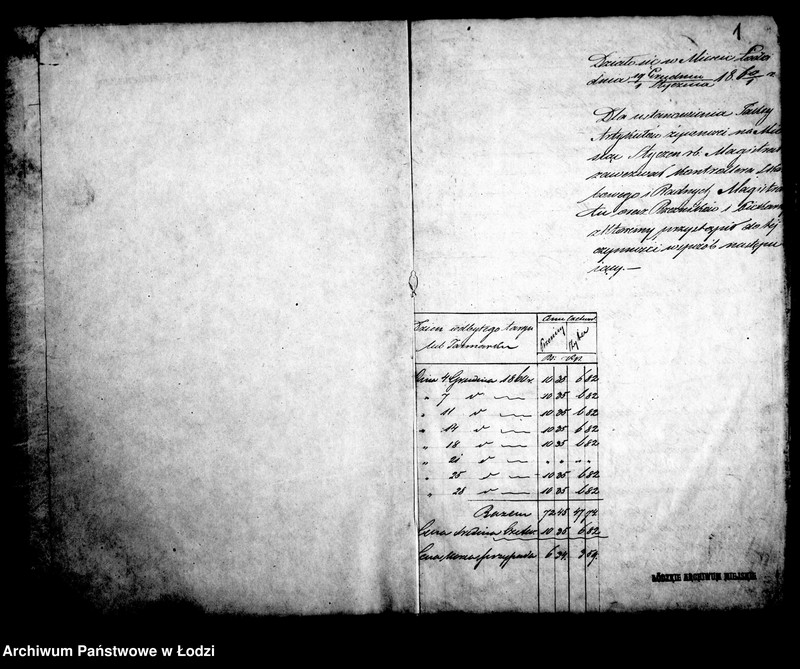 1
Działo się w Mieście Łodzi
dnia 19 Grudnia / 1 Stycznia 1860/1 r.
Dla ustanowienia Taxy
Artykułów żywności na Mie-
siąc Styczeń rb. Magistrat
zawezwał Kontrollera
i Radnych Magistra-
tu oraz
z którymi przystąpił do tej
czynności w sposób następu-
jący.—
Dzień odbytego targu
lub Jarmarku
Cena
Pszenicy
Żyta
Rs. kop.
Dnia 4 Grudnia 1860 r. 10 35 6 82
" 7 d° — 10 35 6 82
" 11 d° — 10 35 6 82
" 14 d° — 10 35 6 82
" 18 d° — 10 35 6 82
" 21 d° — " " " "
" 25 d° — 10 35 6 82
" 28 d° — 10 35 6 82
Razem 72 45 47 74
Cena średnia 10 35 6 82
Cena
ŁÓDZKIE ARCHIWUM MIEJSKIE
Archiwum Państwowe w Łodzi